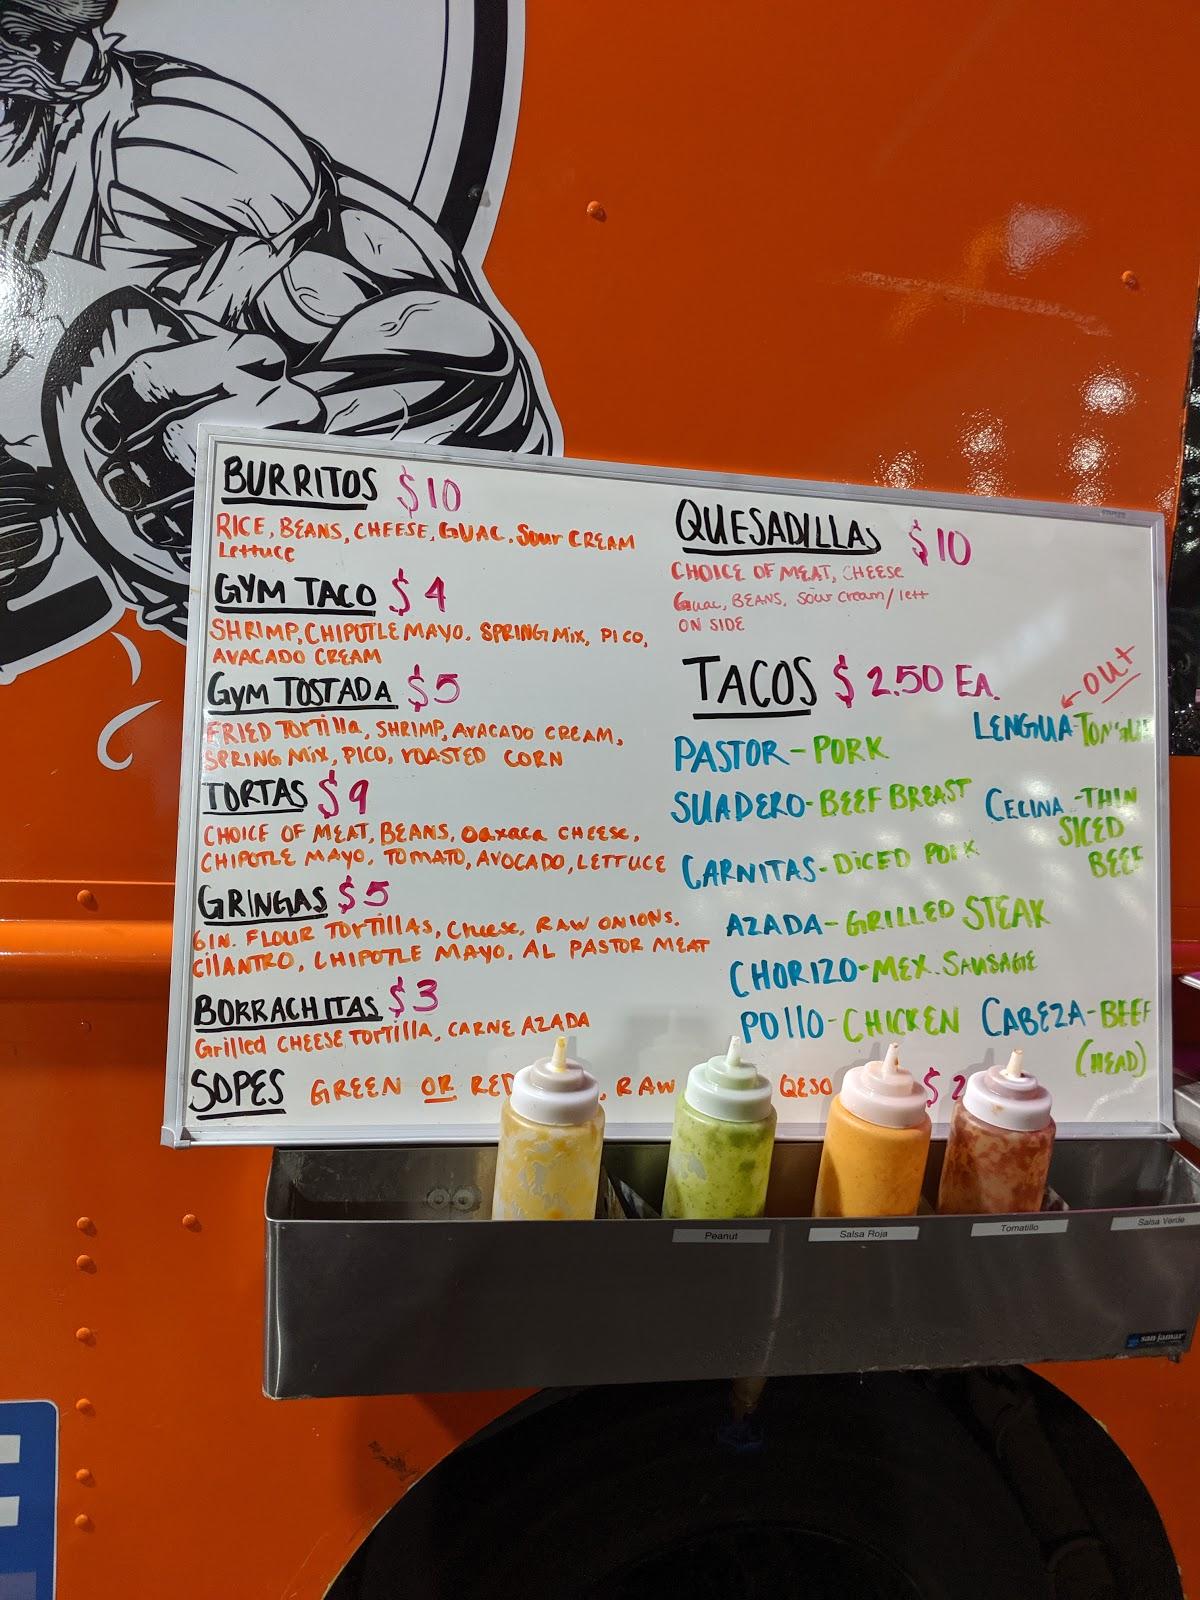 BURRITOS $10
RICE, BEANS, CHEESE, GUAC. Sour CREAM
Lettuce
GYM TACO $4
SHRIMP, CHIPOTLE MAYO. SPRING Mix, PICO,
AVACADO CREAM
Gym TOSTADA $5
FRIED Tortilla, SHRIMP, AVACADO CREAM,
SPRING Mix, PICO, rOASTED CORN
TORTAS $9
CHOICE OF MEAT, BEANS, Oaxaca CHEESE,
CHIPOTLE MAYO. TOMATO, AVOCADO, LETTUCE
GRINGAS $5
6IN. FLOUR TORTILLAS, Cheese, RAW ONIONS.
CILANTRO, CHIPOTLE MAYO, AL PASTOR MEAT
BORRACHITAS $3
Grilled CHEESE Tortilla, CARNE AZADA
SOPES GREEN OR RED , RAW QESO $2
QUESADILLAS $10
CHOICE OF MEAT, CHEESE
Guac, BEANS, Sour cream/lett
ON SIDE
TACOS $2.50 EA.
OUT
LENGUA-TONGUE
PASTOR-PORK
SUADERO-BEEF BREAST
CECINA-THIN
SICED
BEEF
CARNITAS-DICED PORK
AZADA-GRILLED STEAK
CHORIZO-MEX. SAUSAGE
POllO-CHICKEN
CABEZA-BEEF
(HEAD)
Peanut
Salsa Roja
Tomatillo
Salsa Verde
san jamar